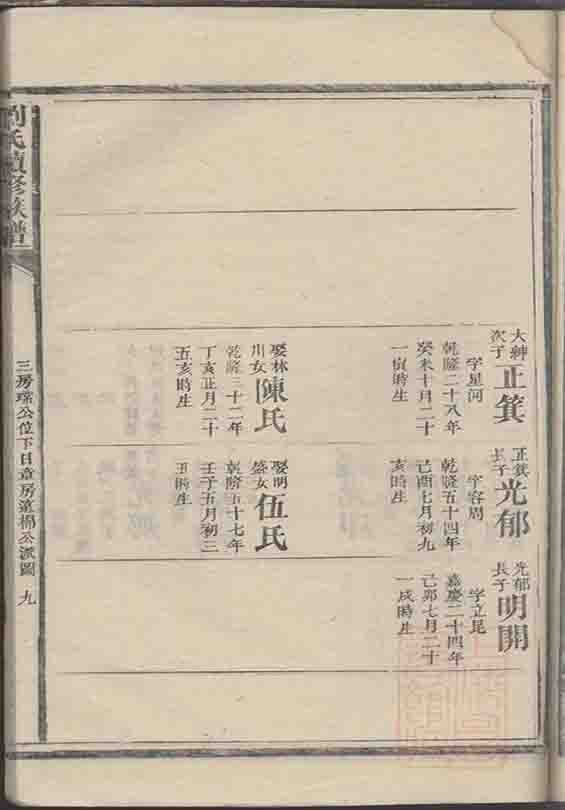 大紳
次子
正箕
字星河
乾隆二十八年
癸未十月二十
一寅時生
娶林
川女
陳氏
乾隆三十二年
丁亥正月二十
五亥時生
正箕
長子
光郁
字容周
乾隆五十四年
己酉七月初九
亥時生
娶明
盛女
伍氏
乾隆五十七年
壬子五月初三
丑時生
光郁
長子
明開
字立昆
嘉慶二十四年
己卯七月二十
一戌時生
劉氏續修族譜
三房瑞公位下日章房遠楊公派圖 九